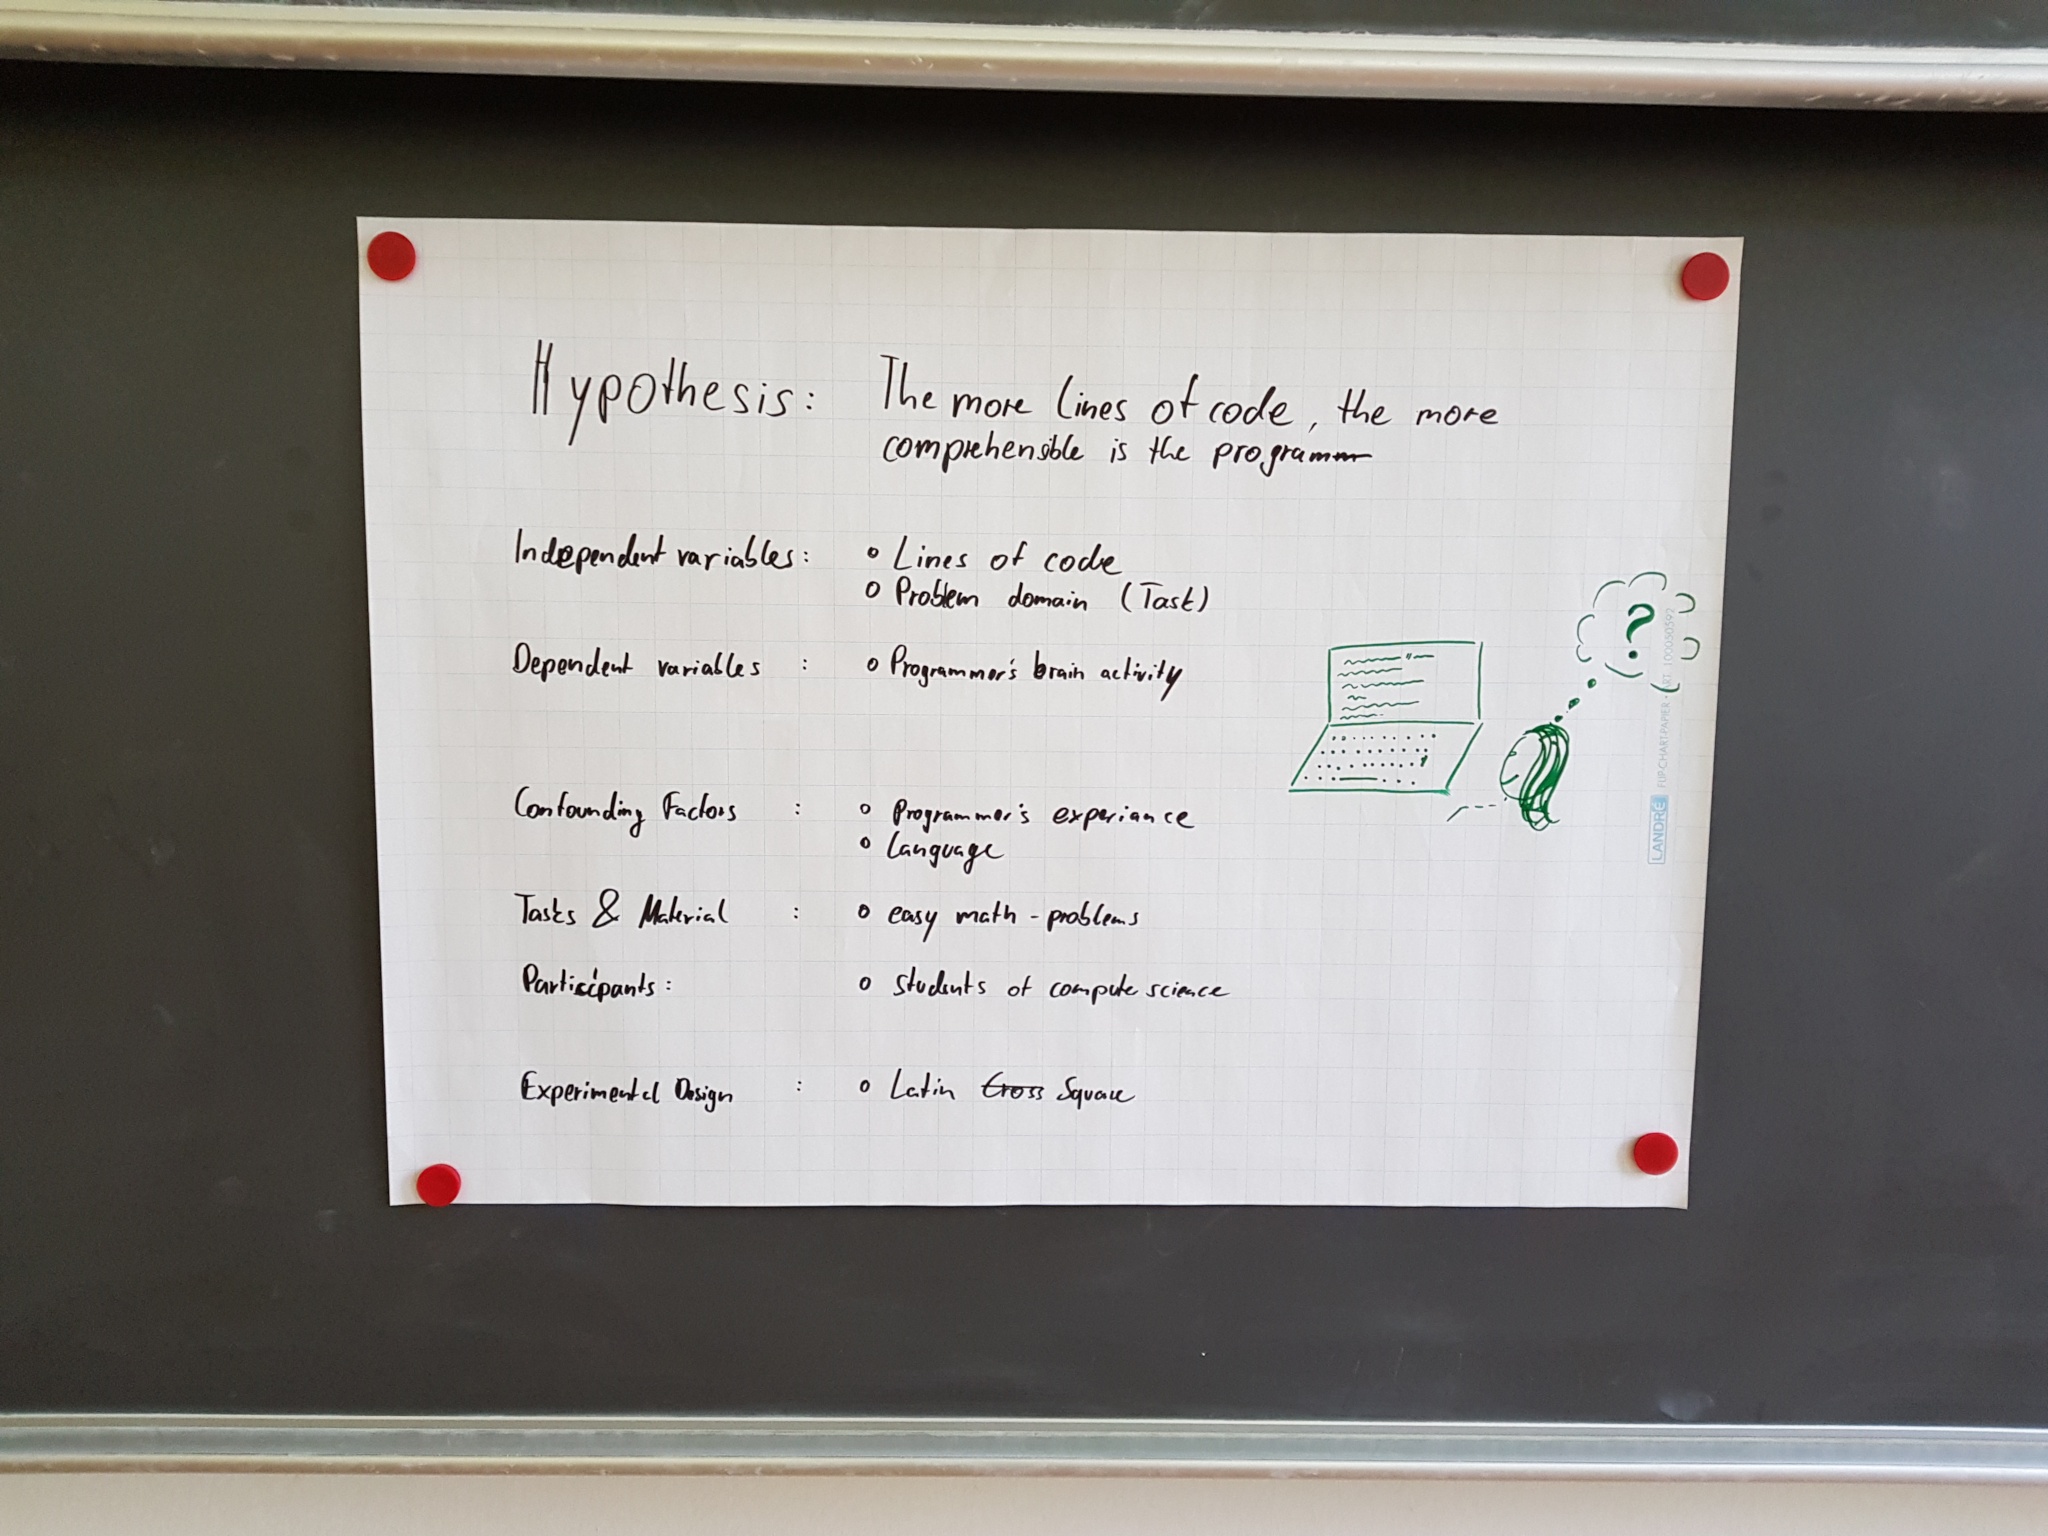 Hypothesis: The more lines of code, the more
comprehensible is the program
Independent variables: o Lines of code
o Problem domain (Task)
Dependent variables : o Programmer's brain activity
Confounding Factors : o Programmer's experiance
o Language
Tasks & Material : o easy math-problems
Participants: o students of compute science
Experimental Design : o Latin Cross Square
?
LANDRÉ FLIP-CHARTPAPIER · ART. 100050592